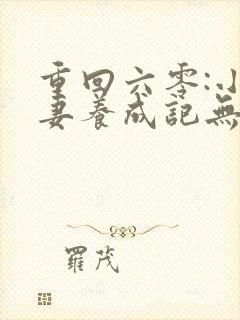 重回六零:小
妻養成記無
羅茂